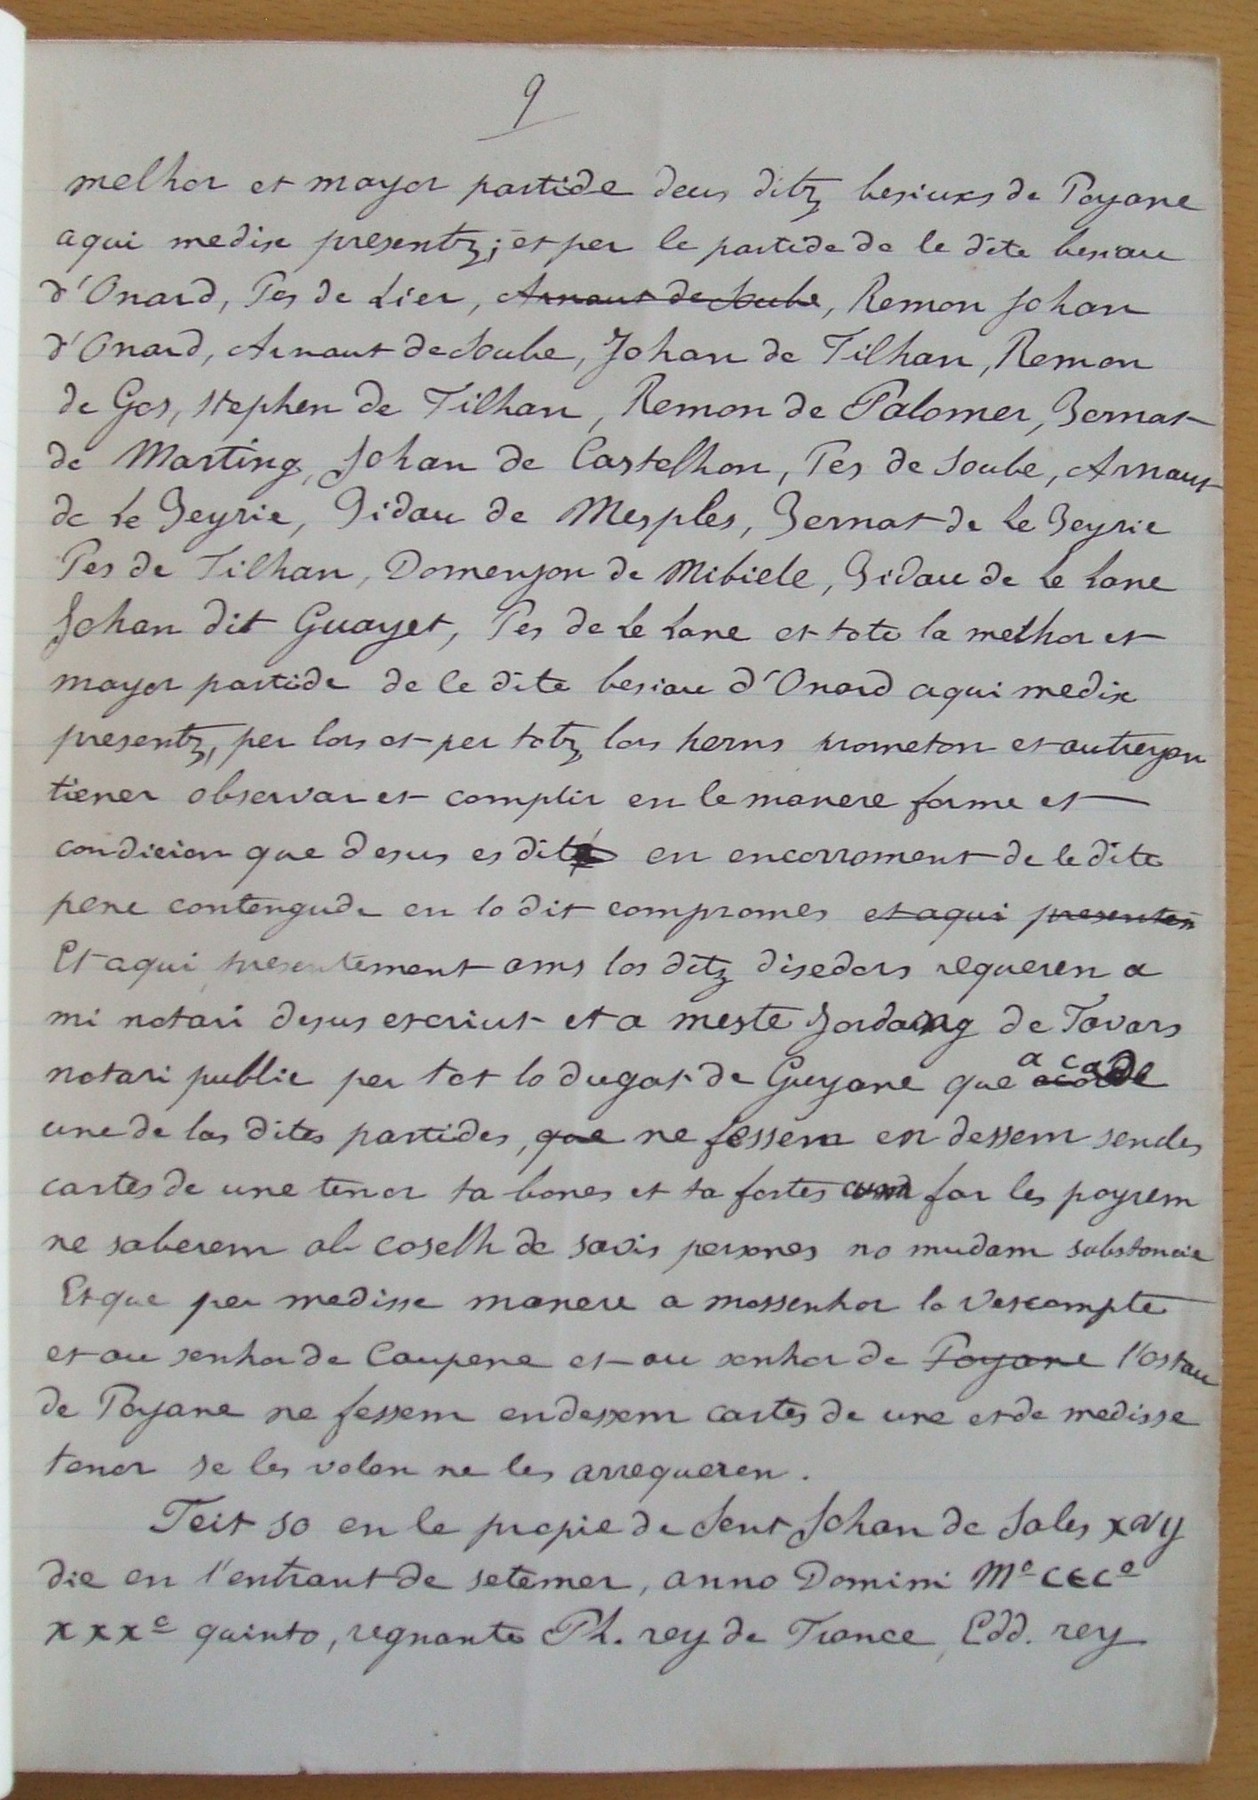 9
melhor et mayor partide deus ditz besiuxs de Poyane
aqui medix presentz; et per le partide de le dite besiau
d'Onard, Pes de Lier, Arnaut de Soube, Remon Johan
d'Onard, Arnaut de Soube, Johan de Tilhan, Remon
de Gos, Stephen de Tilhan, Remon de Palomer, Bernat
de Marting, Johan de Castelhon, Pes de Soube, Arnaut
de Le Beyrie, Bidau de Mesples, Bernat de Le Beyrie
Pes de Tilhan, Domenjon de Mibiele, Bidau de Le Lane
Johan dit Guayet, Pes de Le Lane et tote la melhor et
mayor partide de le dite besiau d'Onard aqui medix
presentz, per lors et per totz lors herns prometon et autreyan
tiener observar et complir en le manere forme et
condicion que desus es dit en encorrement de le dite
pene contengude en lo dit compromes et aqui presenten
Et aqui presentement ams los ditz disedors requeren a
mi notari desus escriut et a meste Jordang de Tavars
notari public per tot lo dugat de Guyane que a cade
une de las dites partides, que ne fessem en dessem sendes
cartes de une tenor ta bones et ta fortes cum far les poyrem
ne saberem ab coselh de savis persones no mudam substancie
Et que per medisse manere a mossenhor lo Vescompte
et au senhor de Caupene et au senhor de Poyane l'ostau
de Poyane ne fessem en dessem cartes de une et de medisse
tenor se les volen ne les arrequeren.
Feit so en le propie de Sent Johan de Sales xvy
die en l'entrant de setemer, anno Domini Mº CCCº
xxxº quinto, regnante Ph. rey de France, Edd. rey